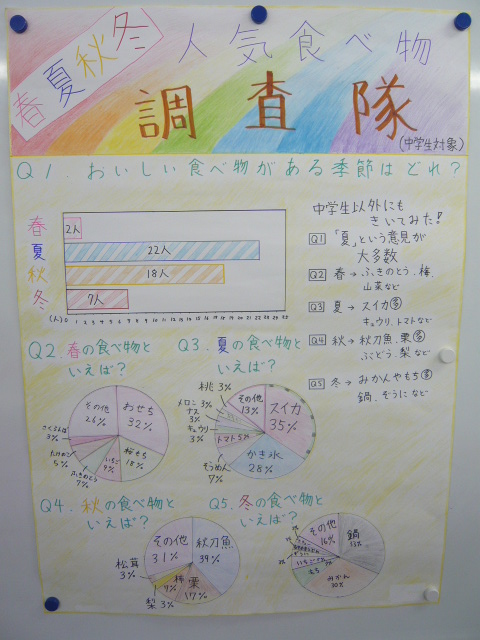 春夏秋冬 人気食べ物
調査隊
(中学生対象)
Q1.おいしい食べ物がある季節はどれ?
春 2人
夏 22人
秋 18人
冬 7人
(人) 0 1 2 3 4 5 6 7 8 9 10 11 12 13 14 15 16 17 18 19 20 21 22 23 24 25
中学生以外にも
きいてみた!
Q1 「夏」という意見が
大多数
Q2 春→ふきのとう、
山菜など
Q3 夏→スイカ多
キュウリ、トマトなど
Q4 秋→秋刀魚、栗多
ぶどう、梨など
Q5 冬→みかんやもち多
鍋、ぞうになど
Q2.春の食べ物と
いえば?
おせち
32%
桜もち
18%
いちご
9%
ふきのとう
7%
たけのこ
5%
さくらんぼ
3%
その他
26%
Q3.夏の食べ物と
いえば?
スイカ
35%
かき氷
28%
そうめん
7%
トマト5%
キュウリ
3%
ナス
3%
メロン3%
桃3%
その他
13%
Q4.秋の食べ物と
いえば?
秋刀魚
39%
栗
17%
柿
9%
梨3%
松茸
3%
その他
31%
Q5.冬の食べ物と
いえば?
鍋
みかん
30%
もち
いちご
その他
16%